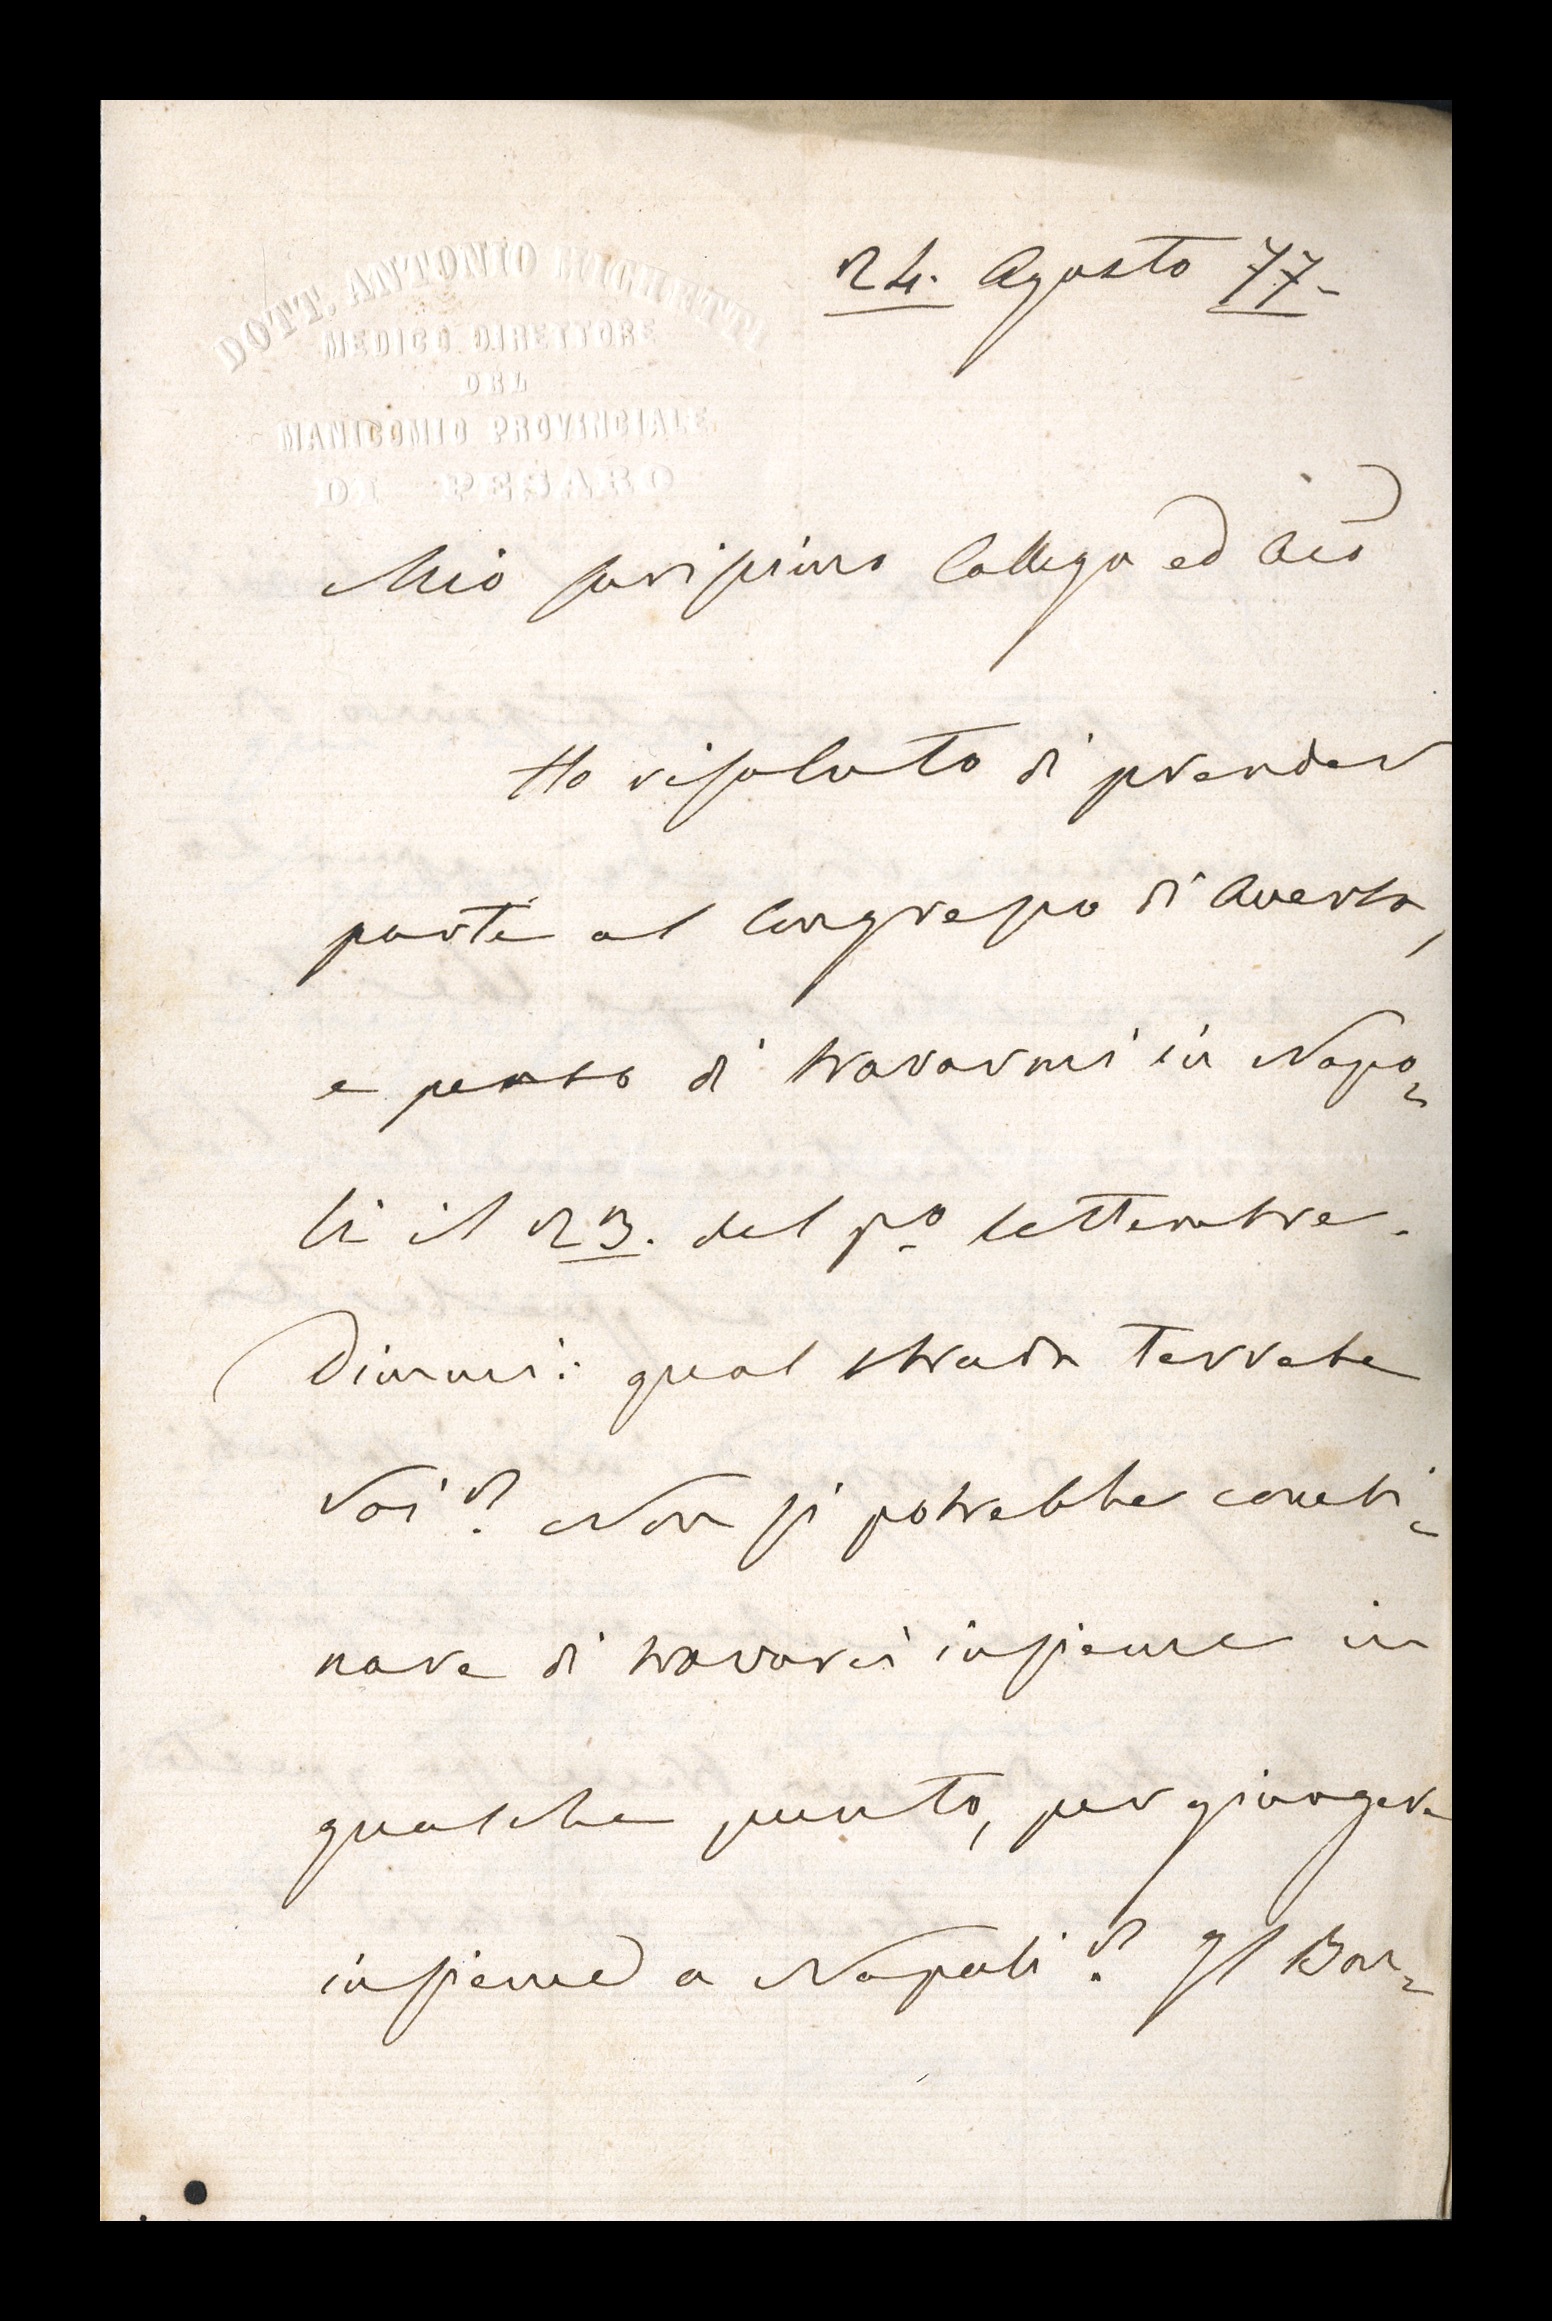 DOTT. ANTONIO MICHETTI
MEDICO DIRETTORE
DEL
MANICOMIO PROVINCIALE
DI PESARO
24. Agosto 77-
Mio carissimo Collega ed Aco
Ho risoluto di prender
parte al Congresso di Aversa,
e penso di trovarmi in Napo=
li il 23. del po settembre.
Dimmi: qual strada terrete
Voi? Non si potrebbe combi=
nare di trovarci insieme in
qualche punto, per giungere
insieme a Napoli? Il Bon=